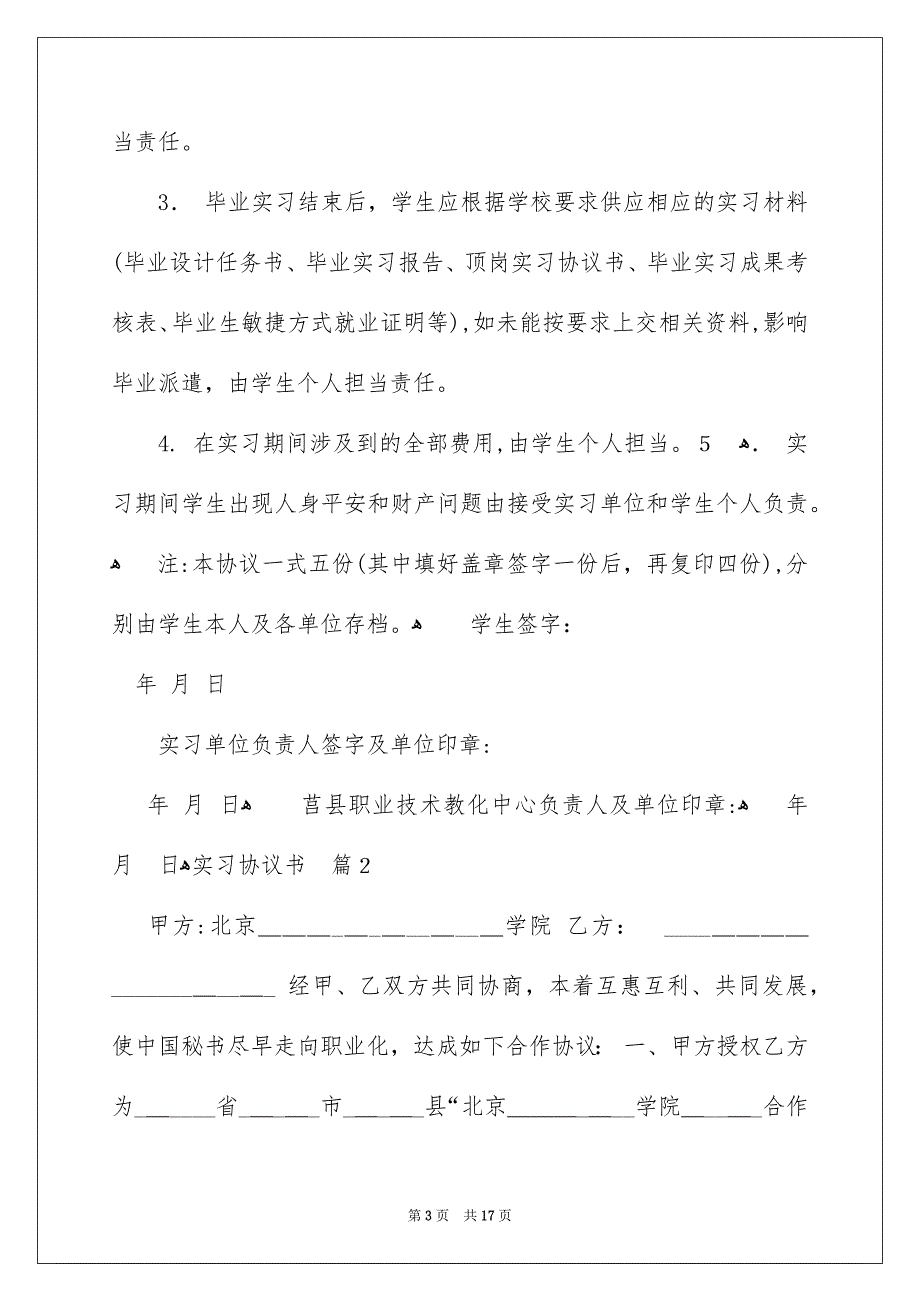 当责任。
3． 毕业实习结束后，学生应根据学校要求供应相应的实习材料
(毕业设计任务书、毕业实习报告、顶岗实习协议书、毕业实习成果考
核表、毕业生敏捷方式就业证明等),如未能按要求上交相关资料,影响
毕业派遣，由学生个人担当责任。
4. 在实习期间涉及到的全部费用,由学生个人担当。５ ﻫ． 实
习期间学生出现人身平安和财产问题由接受实习单位和学生个人负责。
ﻫ 注:本协议一式五份(其中填好盖章签字一份后，再复印四份),分
别由学生本人及各单位存档。ﻫ 学生签字：
年 月 日
实习单位负责人签字及单位印章:
年 月 日ﻫ 莒县职业技术教化中心负责人及单位印章:ﻫ 年
月 日ﻫ实习协议书 篇2
甲方:北京____________________学院 乙方： ____________
______________ 经甲、乙双方共同协商，本着互惠互利、共同发展，
使中国秘书尽早走向职业化，达成如下合作协议： 一、甲方授权乙方
为_______省_______市_______县“北京___________学院_______合作
第 3 页 共 17 页